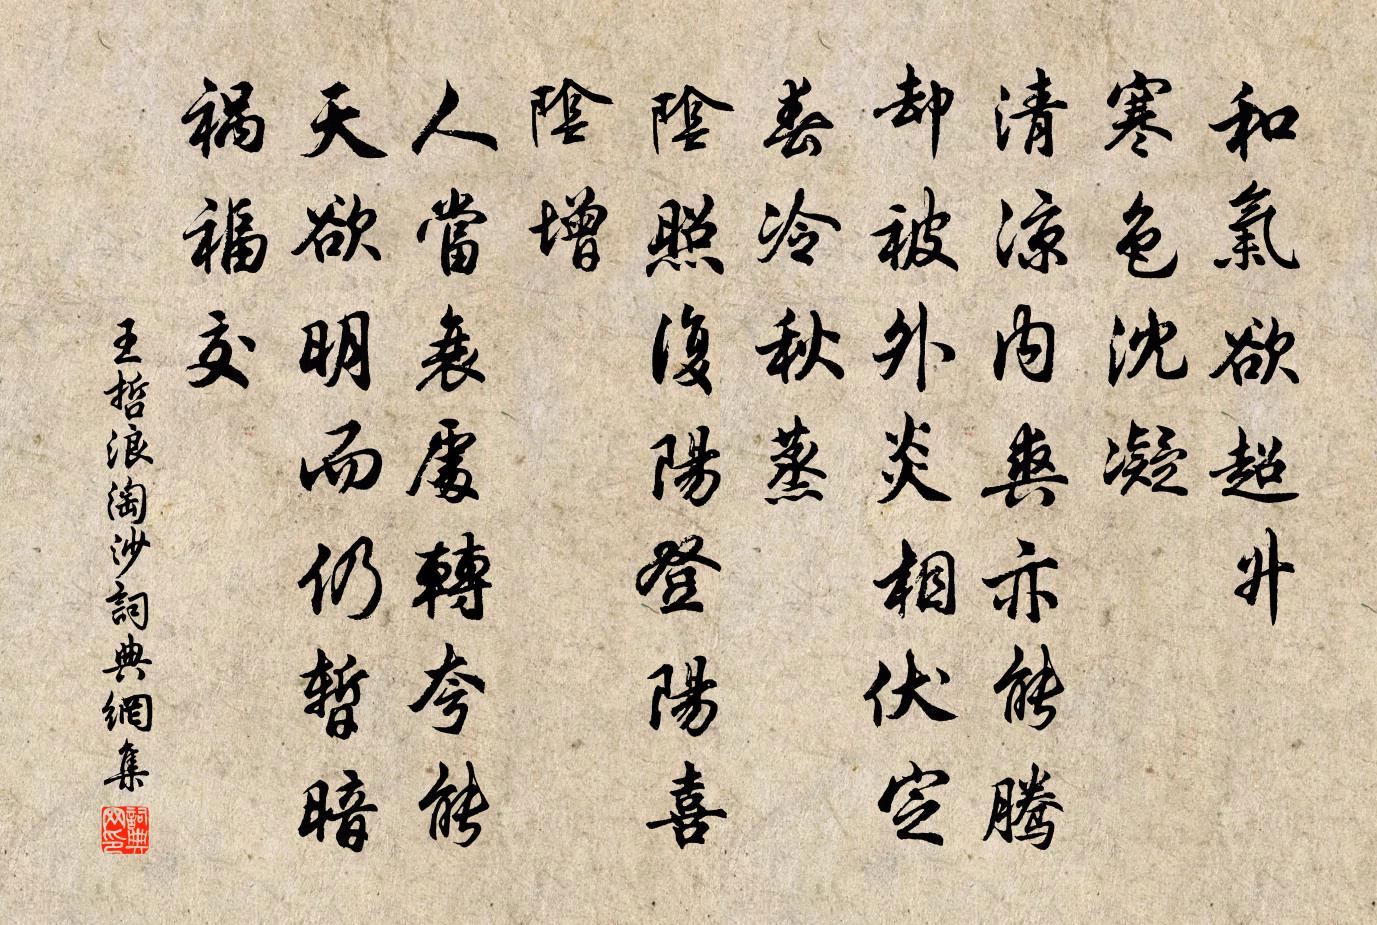 和氣欲超升
寒色沈凝
清涼內爽亦能騰
却被外炎相伏定
春冷秋蒸
陰照復陽登陽喜
陰增
人當衰處轉夸能
天欲明而仍暫暗
禍福交
王哲浪淘沙詞典網集
詞典网印